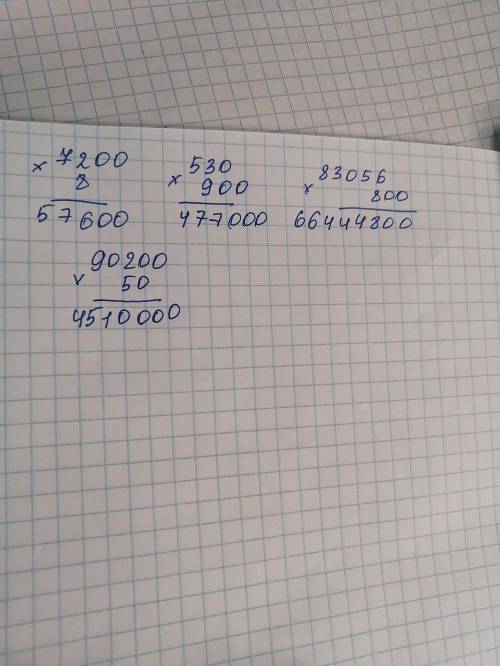 × 7200
8
57600
× 530
900
477000
× 83056
800
66444800
× 90200
50
4510000